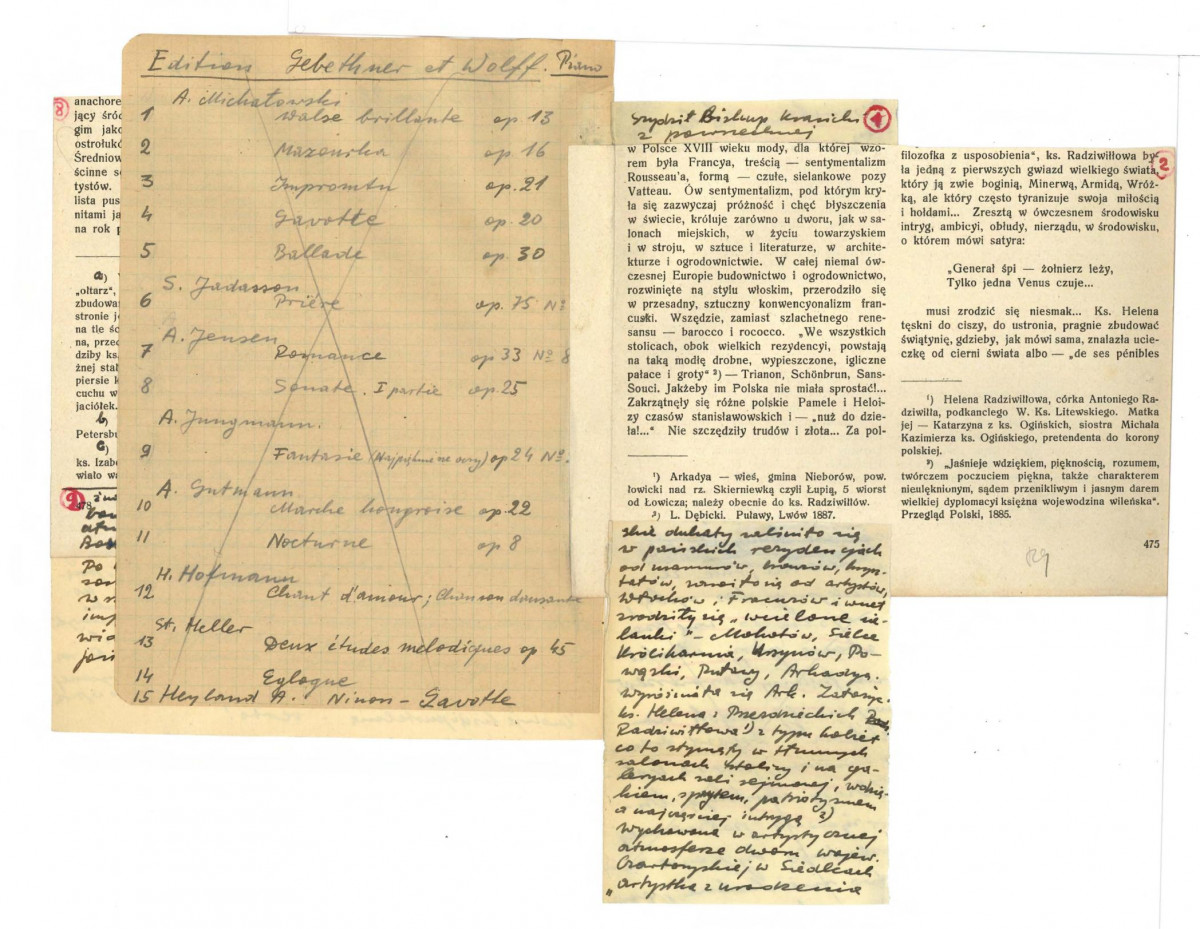 Edition Gebethner et Wolff. Piano
A. Michałowski
1 Walse brillante op. 13
2 Mazourka op. 16
3 Impromtu op. 21
4 Gavotte op. 20
5 Ballade op. 30
S. Jadasson
6 Prière op. 75 Nº
A. Jensen
7 Romance op 33 Nº 8
8 Sonate. I partie op. 25
A. Jungmann.
9 Fantasie op 24 Nº.
A. Gutmann
10 Marche hongroise op. 22
11 Nocturne op 8
H. Hofmann
12 Chant d'amour; Chanson dansante
St. Heller
13 Deux études melodiques op 45
14 Eglogue
15 Heyland A. Ninon - Gavotte
8
anachore
jący śród
gim jako
ostrołukó
Średniow
ścinne s
tystów.
lista pus
nitami ja
na rok p
a)
„ołtarz",
zbudowa
stronie j
na tle śc
na, przed
dziby ks.
żnej stal
piersie k
cuchu w
jaciółek.
b)
Petersbu
c)
ks. Izabe
wiało wa
9
478
Po
1
Biskup Krasicki
z powszechnej
w Polsce XVIII wieku mody, dla której wzo-
rem była Francya, treścią — sentymentalizm
Rousseau'a, formą — czułe, sielankowe pozy
Vatteau. Ów sentymentalizm, pod którym kry-
ła się zazwyczaj próżność i chęć błyszczenia
w świecie, króluje zarówno u dworu, jak w sa-
lonach miejskich, w życiu towarzyskiem
i w stroju, w sztuce i literaturze, w archite-
kturze i ogrodownictwie. W całej niemal ów-
czesnej Europie budownictwo i ogrodownictwo,
rozwinięte na stylu włoskim, przerodziło się
w przesadny, sztuczny konwencyonalizm fran-
cuski. Wszędzie, zamiast szlachetnego rene-
sansu — barocco i rococco. „We wszystkich
stolicach, obok wielkich rezydencyi, powstają
na taką modłę drobne, wypieszczone, igliczne
pałace i groty" ²) — Trianon, Schönbrun, Sans-
Souci. Jakżeby im Polska nie miała sprostać!...
Zakrzątnęły się różne polskie Pamele i Heloi-
zy czasów stanisławowskich i — „nuż do dzie-
ła!..." Nie szczędziły trudów i złota... Za pol-
¹) Arkadya — wieś, gmina Nieborów, pow.
łowicki nad rz. Skierniewką czyli Łupią, 5 wiorst
od Łowicza; należy obecnie do ks. Radziwiłłów.
²) L. Dębicki. Puławy, Lwów 1887.
skie dukaty zaśmiło się
w pańskich rezydencjach
od marmurów, bronzów, krysz-
tałów, zaroiło się od artystów,
Włochów i Francuzów i wnet
zrodziły się „wcielone sie-
lanki" – Mokotów, Sielce
Królikarnia, Ursynów, Po-
wązki, Puławy, Arkadya.
wyróżniała się Ark.
ks. Helena z Przezdzieckich
Radziwiłłowa ¹) z typu kobiet
co to słynęły w tłumnych
salonach stolicy i na ga-
leryach sali sejmowej, wdzię-
kiem, sprytem, patriotyzmem
a najczęściej intrygą ²)
Wychowana w artystycznej
atmosferze dworu wojew.
Czartoryskiej w Siedlcach
„artystka z urodzenia
2
filozofka z usposobienia", ks. Radziwiłłowa by-
ła jedną z pierwszych gwiazd wielkiego świata,
który ją zwie boginią, Minerwą, Armidą, Wróż-
ką, ale który często tyranizuje swoją miłością
i hołdami... Zresztą w ówczesnem środowisku
intryg, ambicyi, obłudy, nierządu, w środowisku,
o którem mówi satyra:
„Generał śpi — żołnierz leży,
Tylko jedna Venus czuje...
musi zrodzić się niesmak... Ks. Helena
tęskni do ciszy, do ustronia, pragnie zbudować
świątynię, gdzieby, jak mówi sama, znalazła ucie-
czkę od cierni świata albo — „de ses pénibles
¹) Helena Radziwiłłowa, córka Antoniego Ra-
dziwiłła, podkanclego W. Ks. Litewskiego. Matka
jej — Katarzyna z ks. Ogińskich, siostra Michała
Kazimierza ks. Ogińskiego, pretendenta do korony
polskiej.
²) „Jaśnieje wdziękiem, pięknością, rozumem,
twórczem poczuciem piękna, także charakterem
nieulęknionym, sądem przenikliwym i jasnym darem
wielkiej dyplomacyi księżna wojewodzina wileńska".
Przegląd Polski, 1885.
475
89